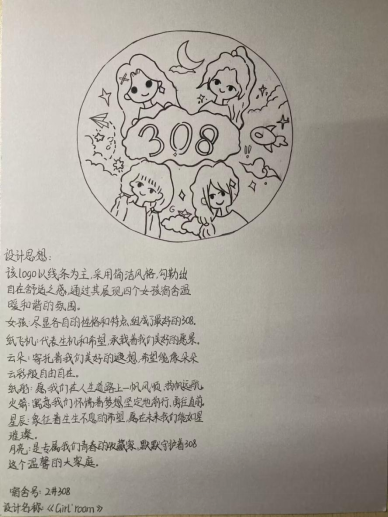 308
设计思想:
该logo以线条为主,采用简洁风格,勾勒出
自在舒适之感,通过其展现四个女孩宿舍温
暖和谐的氛围。
女孩:尽显各自的性格和特点,组成了最好的308.
纸飞机:代表生机和希望,承载着我们美好的愿景。
云朵:寄托着我们美好的遐想,希望能像朵朵
云彩般自由自在。
纸船:愿我们在人生道路上一帆风顺,扬帆远航。
火箭:寓意我们怀揣着梦想坚定地前行,直往
星辰:象征着生生不息的希望,愿在未来我们能如星
璀璨。
月亮:是专属我们青春的收藏家,默默守护着308
这个温馨的大家庭。
宿舍号:2#308
设计名称:《Girl'room》